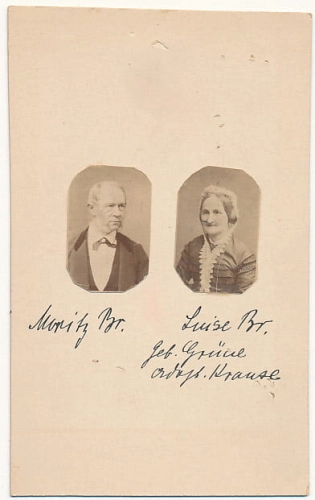 Moritz Br.
Luise Br.
geb. Grüne
adopt. Krause